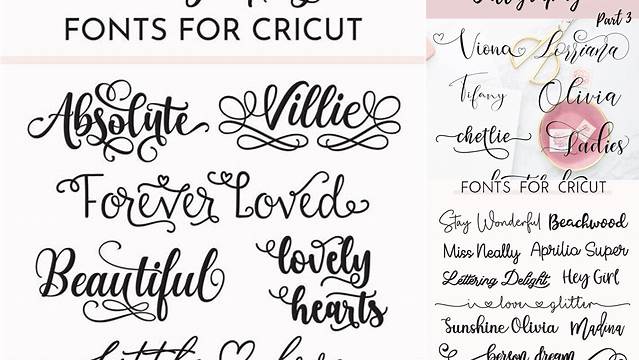 FONTS FOR CRICUT
Absolute
Villie
Forever Loved
Beautiful
lovely
hearts
Part 3
Viona
Lorriana
Tifany
Olivia
chetlie
Ladies
FONTS FOR CRICUT
Stay Wonderful
Beachwood
Miss Neally
Aprilia Super
Lettering Delight
Hey Girl
i love glitter
Sunshine Olivia
Madina